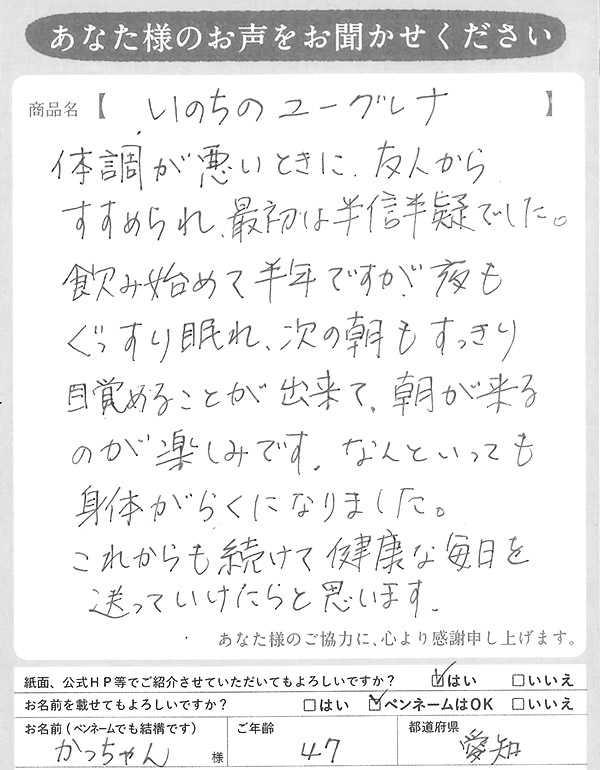 あなた様のお声をお聞かせください
商品名【 いのちのユーグレナ 】
体調が悪いときに、友人から
すすめられ、最初は半信半疑でした。
飲み始めて半年ですが、夜も
ぐっすり眠れ、次の朝もすっきり
目覚めることが出来て、朝が来る
のが楽しみです。なんといっても
身体がらくになりました。
これからも続けて健康な毎日を
送っていけたらと思います。
あなた様のご協力に、心より感謝申し上げます。
紙面、公式HP等でご紹介させていただいてもよろしいですか? ☑はい □いいえ
お名前を載せてもよろしいですか? □はい ☑ペンネームはOK □いいえ
お名前(ペンネームでも結構です) ご年齢 都道府県
かっちゃん 様 47 愛知